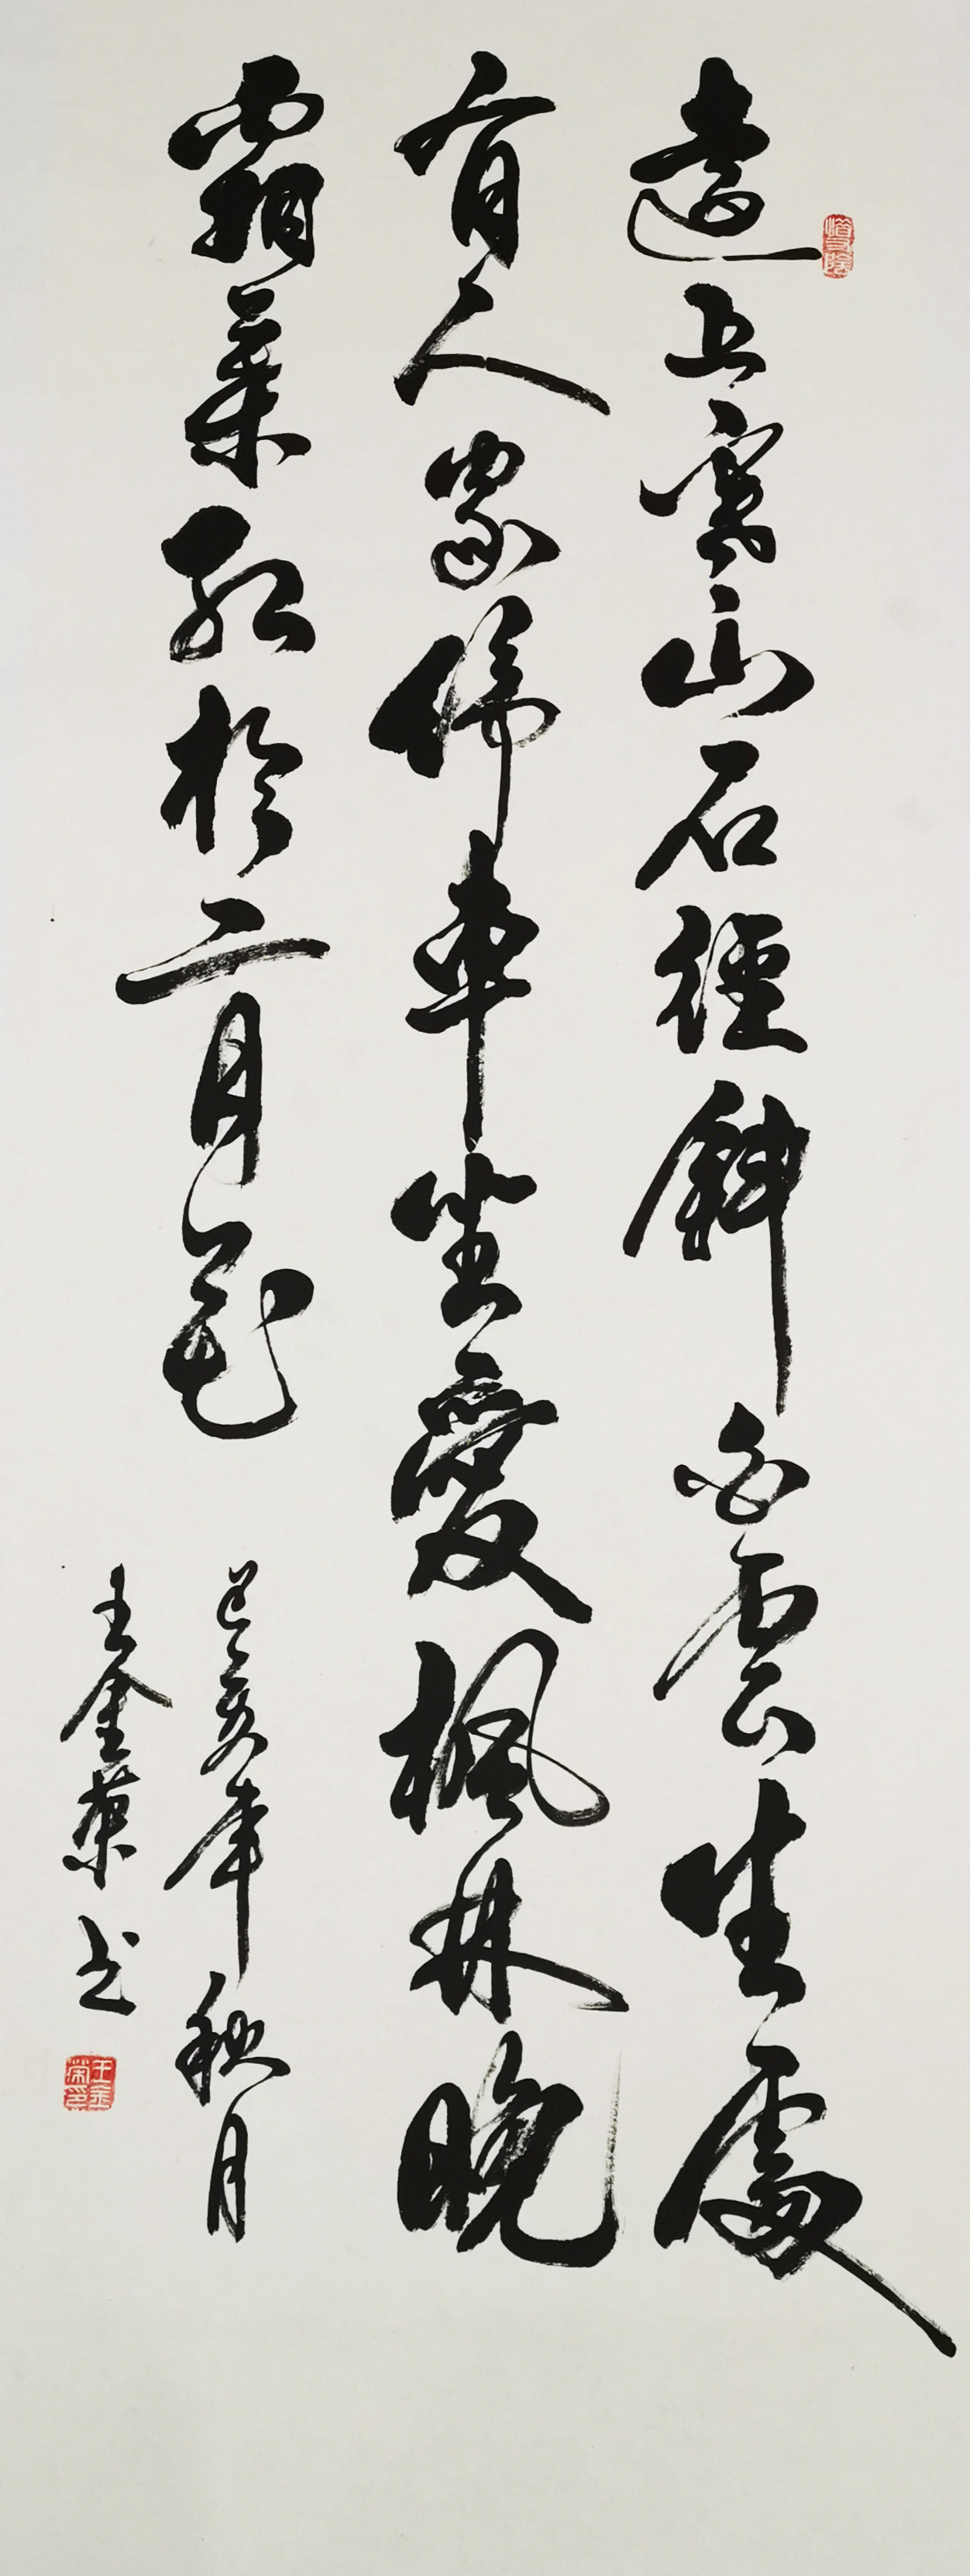 遠上寒山石徑斜白雲生處
有人家停車坐愛楓林晚
霜葉紅於二月花
己亥年秋月
王金荣书
王金荣印